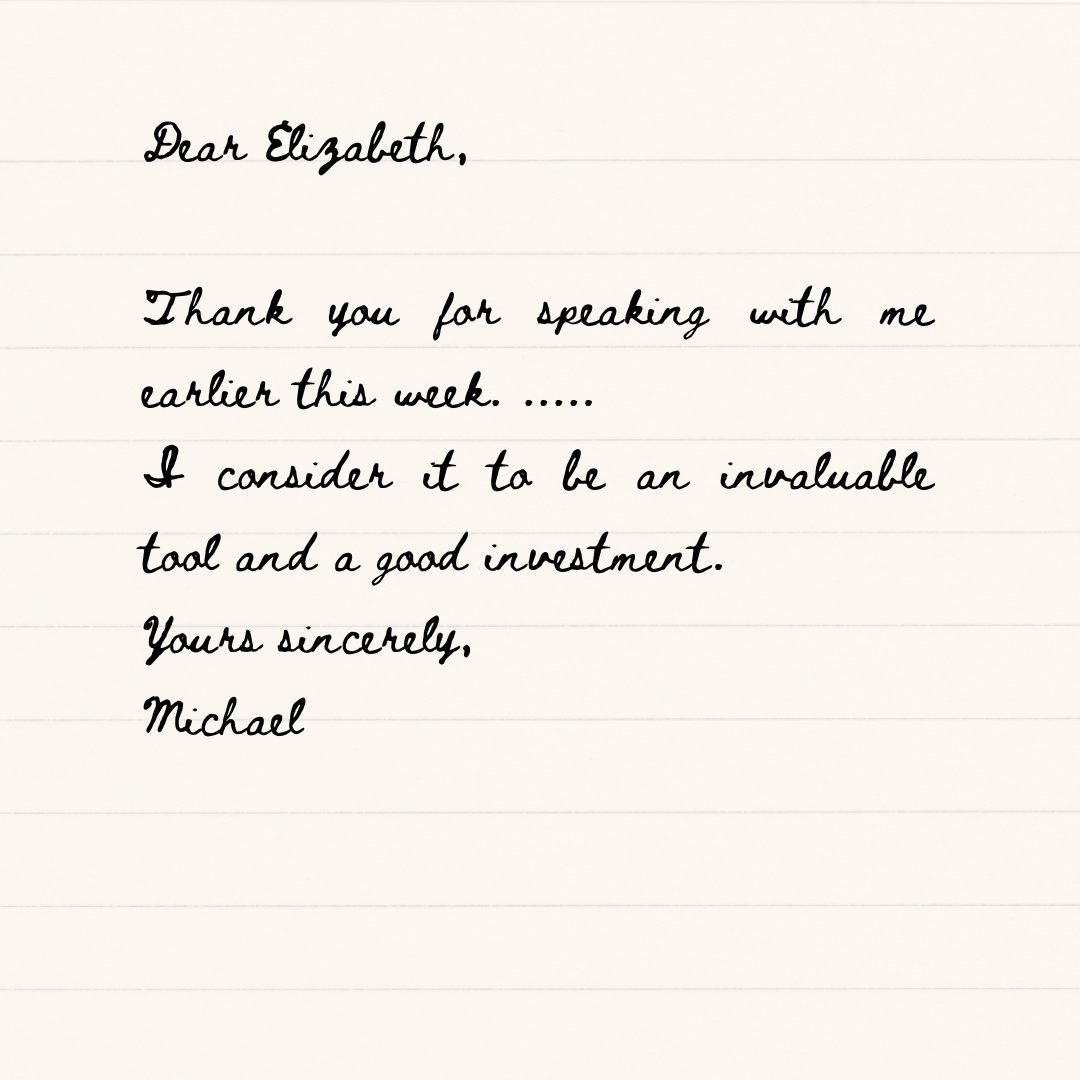 Dear Elizabeth,
Thank you for speaking with me
earlier this week. .....
I consider it to be an invaluable
tool and a good investment.
Yours sincerely,
Michael